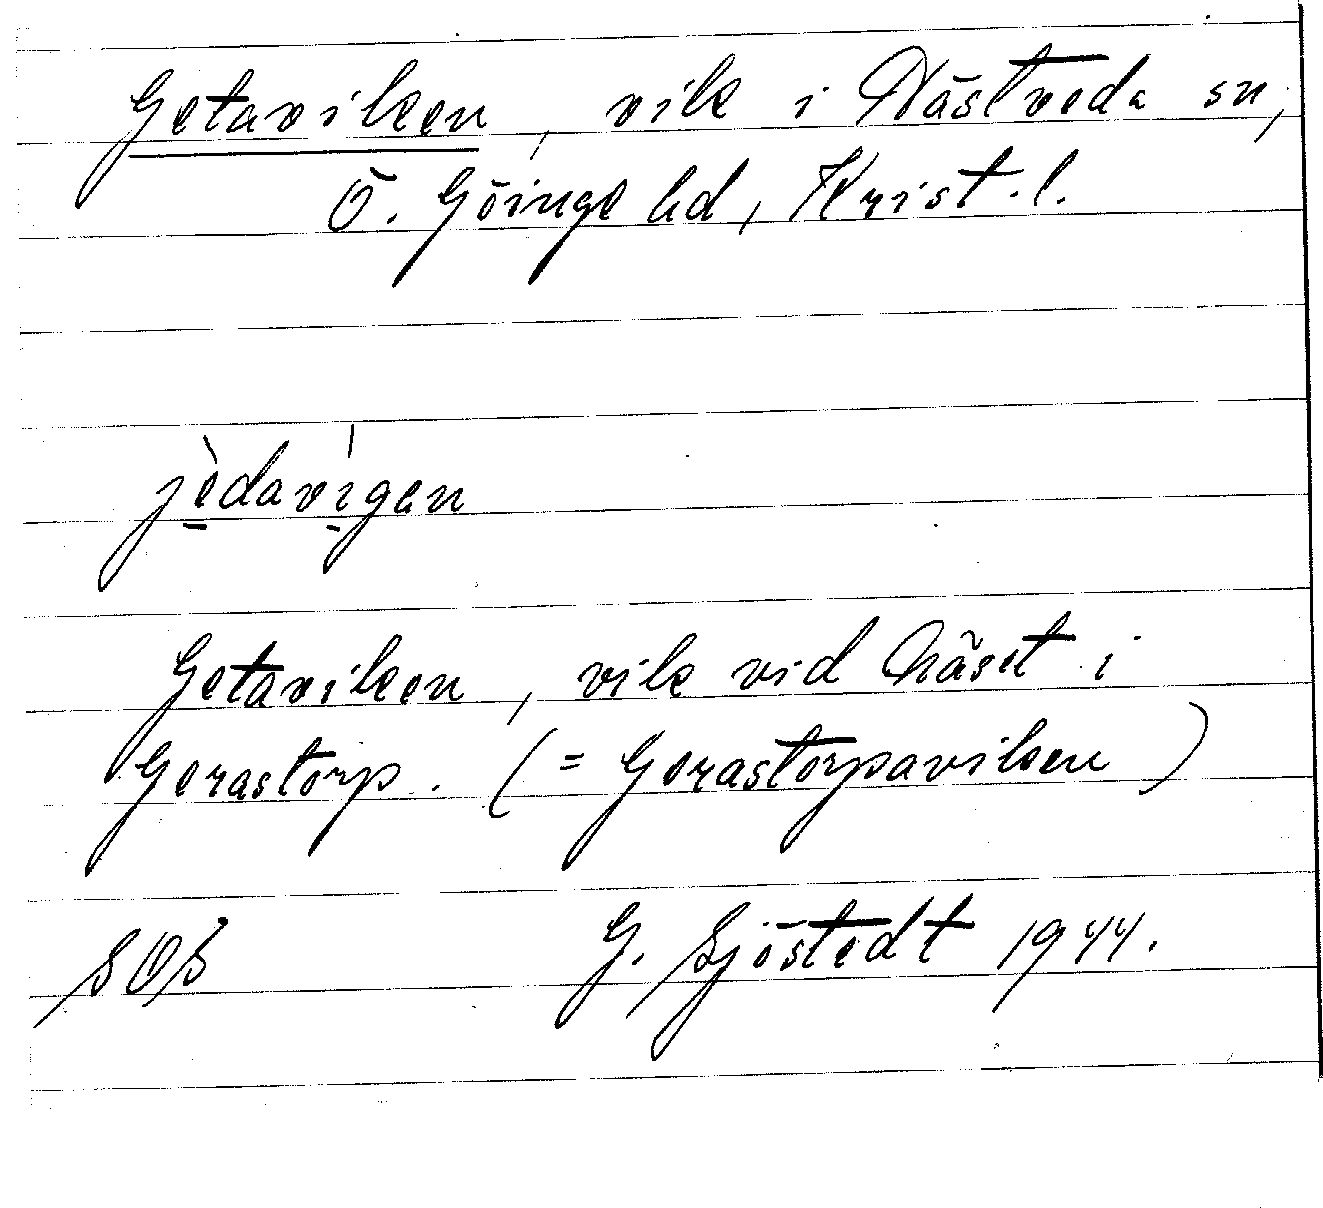 Getaviken, vik i Nästveda sn,
Ö. Göinge hd, Krist. l.
jèdavígen
Getaviken, vik vid Näset i
Gerastorp. (= Gerastorpaviken)
SOB G. Sjöstedt 1944.